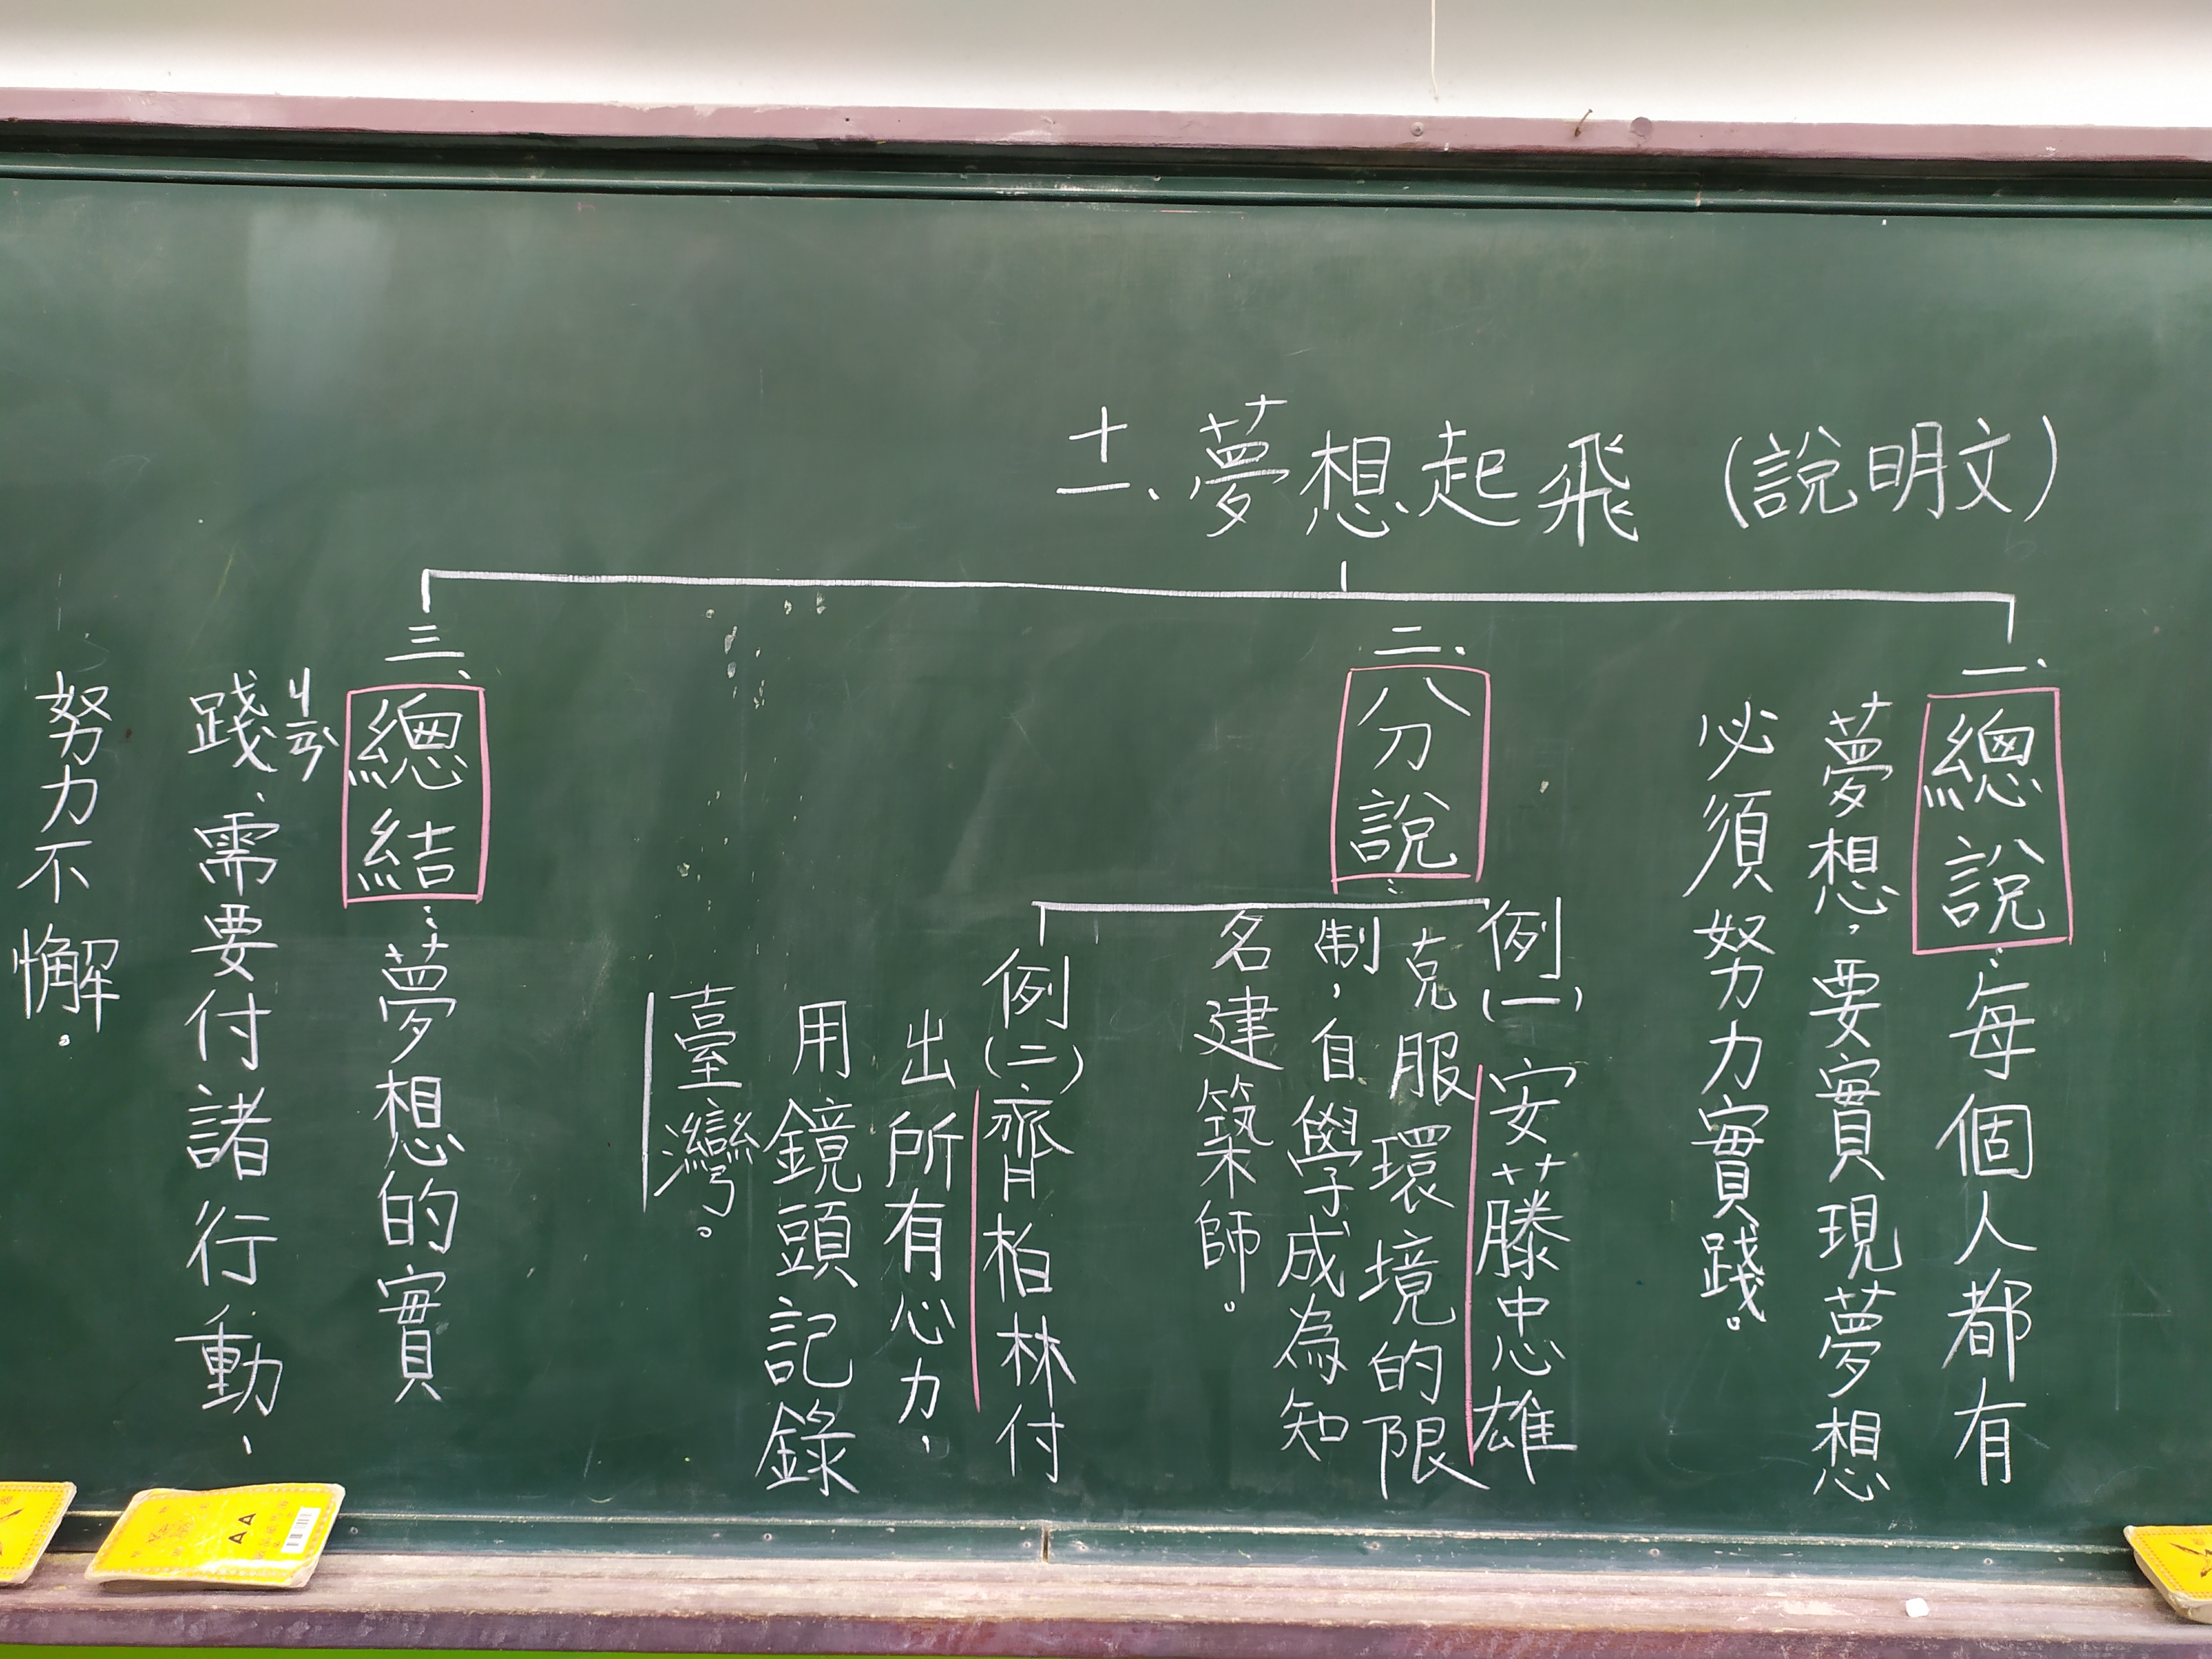 十一、夢想起飛（說明文）
一、總說：每個人都有
夢想，要實現夢想
必須努力實踐。
二、分說：
例(一)安藤忠雄
克服環境的限
制，自學成為知
名建築師。
例(二)齊柏林付
出所有心力，
用鏡頭記錄
臺灣。
三、總結：夢想的實
踐ㄐㄧㄢˋ，需要付諸行動，
努力不懈。